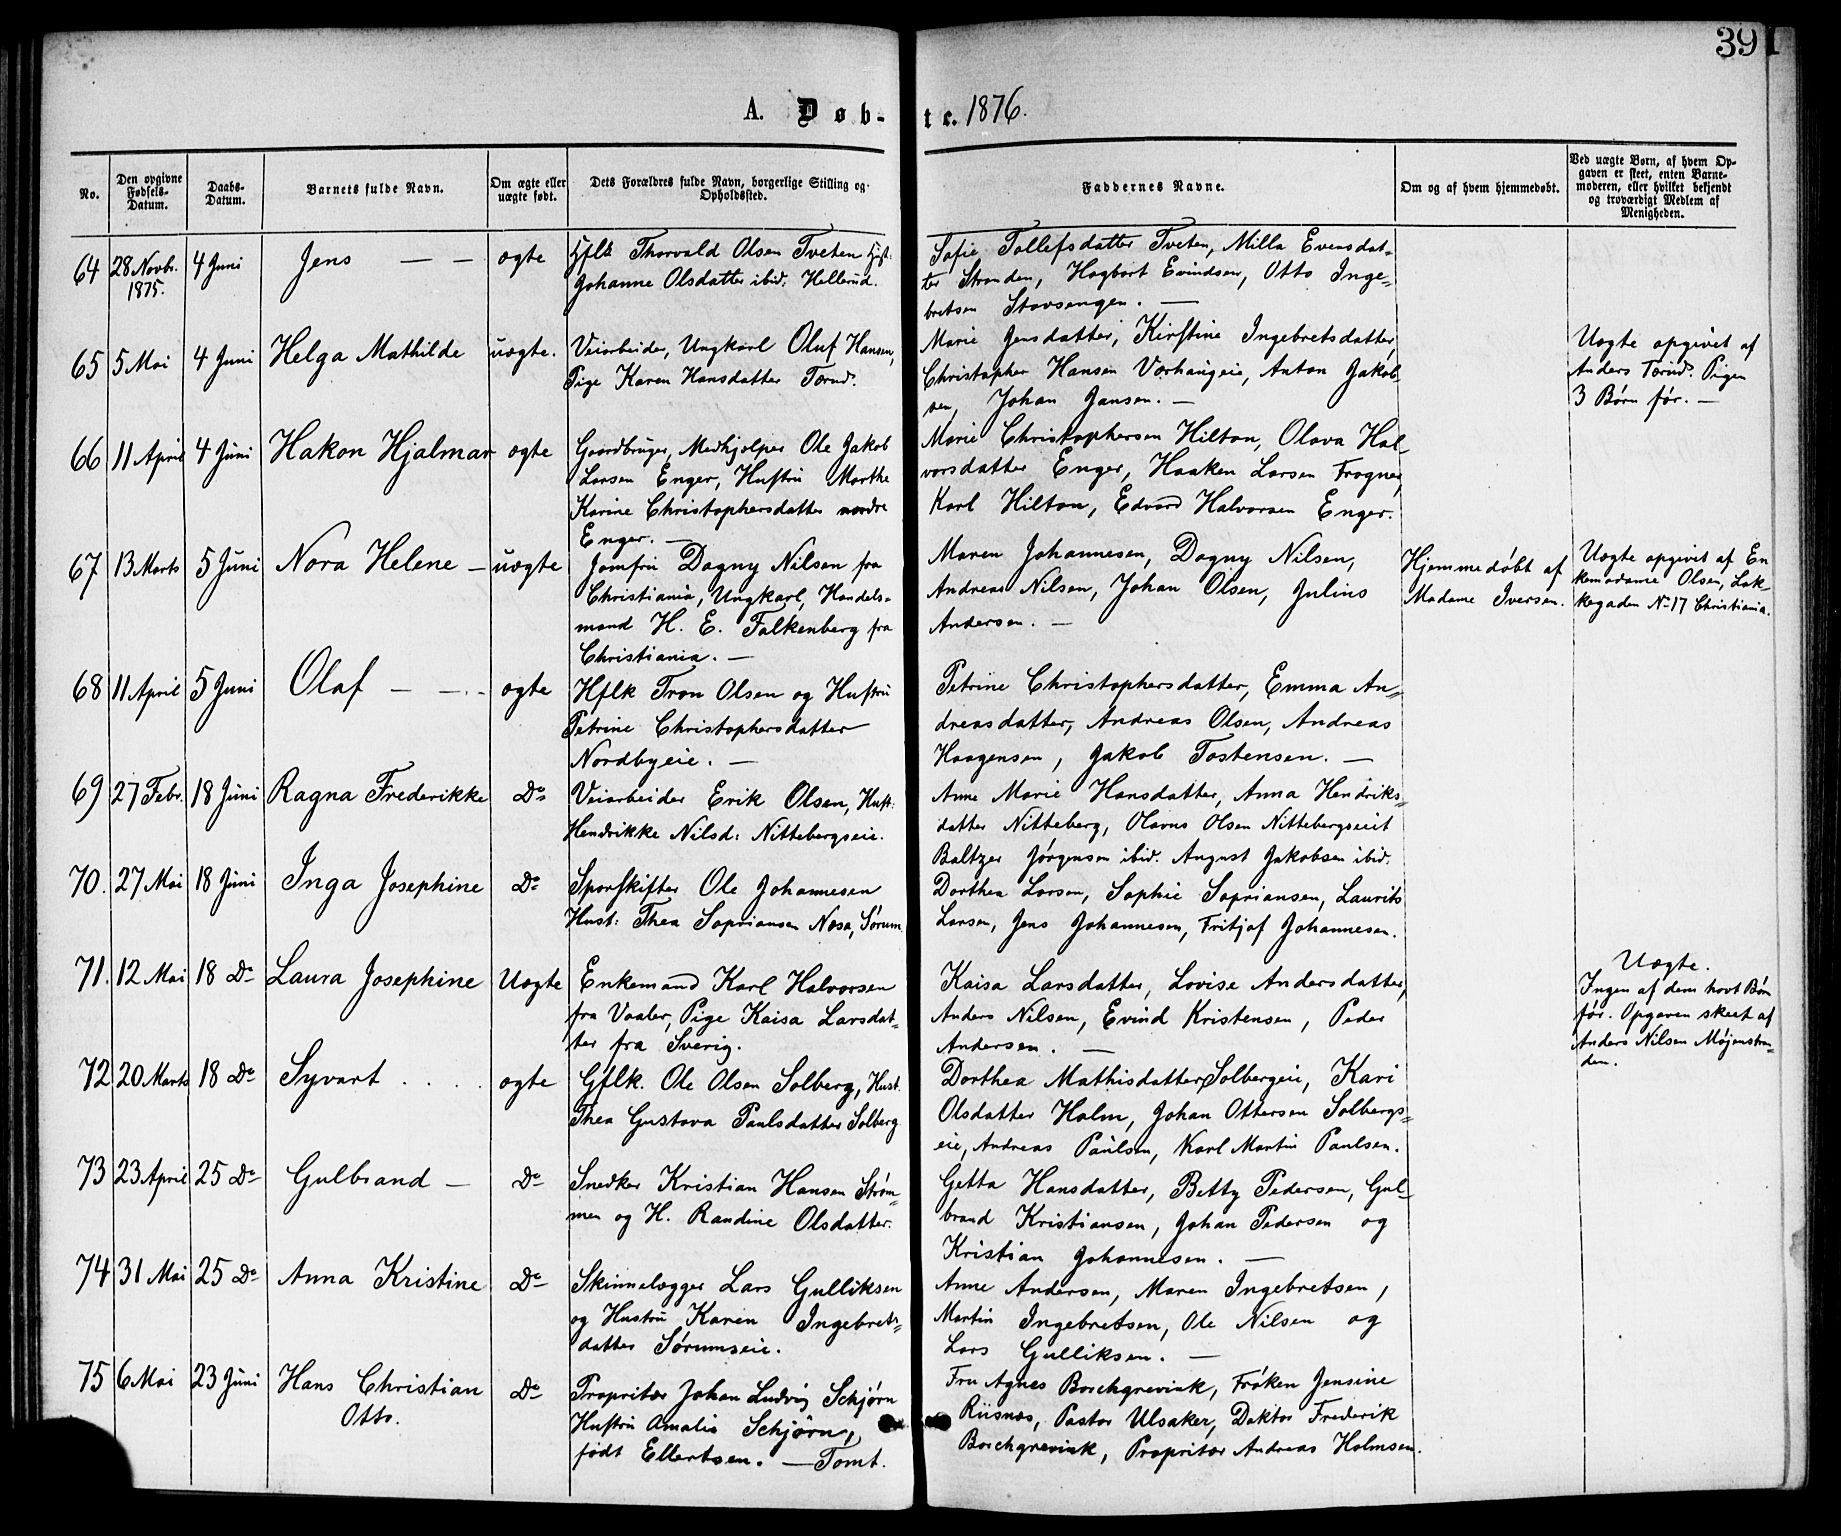 39
A. Døb-
te. 1876.
No.
Den opgivne
Fødsels-
Datum.
Daabs-
Datum.
Barnets fulde Navn.
Om ægte eller
uægte født.
Dets Forældres fulde Navn, borgerlige Stilling og
Opholdssted.
Faddernes Navne.
Om og af hvem hjemmedøbt.
Ved uægte Børn, af hvem Op-
gaven er skeet, enten Barne-
moderen, eller hvilket bekjendt
og troværdigt Medlem af
Menigheden.
64 28 Novb. 4 Juni Jens — — ægte
1875.
Hflk Thorvald Olsen Tveten Hust:
Johanne Olsdatter ibid. Hellerud.
Sofie Tollefsdatter Tveten, Milla Evensdat-
ter Stranden, Hagbart Evindsen, Otto Inge-
bretsen Stovsengen. —
65 5 Mai 4 Juni Helga Mathilde uægte.
Veiarbeider, Ungkarl Oluf Hansen,
Pige Karen Hansdatter Tærud.
Marie Jensdatter, Kirstine Ingebretsdatter,
Christopher Hansen Vorhaugeie, Anton Jakob-
sen, Johan Jansen. —
Uægte opgivet af
Anders Tærud. Pigen
3 Børn før. —
66 11 April 4 Juni Hakon Hjalmar ægte
Gaardbruger, Medhjelper Ole Jakob
Larsen Enger, Hustru Marthe
Karine Christophersdatter nordre
Enger. —
Marie Christophersen Hilton, Olava Hal-
vorsdatter Enger, Haaken Larsen Frogner,
Karl Hilton, Edvard Halvorsen Enger.
67 13 Marts 5 Juni Nora Helene — uægte
Jomfru Dagny Nilsen fra
Christiania, Ungkarl, Handels-
mand H. E. Falkenberg fra
Christiania. —
Maren Johannesen, Dagny Nilsen,
Andreas Nilsen, Johan Olsen, Julius
Andersen. —
Hjemmedøbt af
Madame Iversen.
Uægte opgivet af En
kemadame Olsen, Lak-
kegaden No 17 Christiania.
68 11 April 5 Juni Olaf — — ægte
Hflk Tron Olsen og Hustru
Petrine Christophersdatter
Nordbyeie. —
Petrine Christophersdatter, Emma An-
dreasdatter, Andreas Olsen, Andreas
Haagensen, Jakob Tostensen. —
69 27 Febr. 18 Juni Ragna Frederikke Do
Veiarbeider Erik Olsen, Hust:
Hendrikke Nilsd: Nittebergseie.
Anne Marie Hansdatter, Anna Hendriks-
datter Nitteberg, Olavus Olsen Nittebergseiet
Baltzer Jørgensen ibid. August Jakobsen ibid.
70. 27 Mai 18 Juni Inga Josephine Do
Sporskifter Ole Johannesen
Hust: Thea Sopriansen Næsa, Sørum.
Dorthea Larsen, Sophie Sopriansen, Laurits
Larsen, Jens Johannesen, Fritjof Johannesen.
71. 12 Mai 18 Do Laura Josephine Uægte
Enkemand Karl Halvorsen
fra Vaaler, Pige Kaisa Larsdat-
ter fra Sverig.
Kaisa Larsdatter, Lovise Andersdatter,
Anders Nilsen, Evind Kristensen, Peder
Andersen. —
Uægte.
Ingen af dem havt Børn
før. Opgaven skeet af
Anders Nilsen Møjenstran-
den.
72 20 Marts 18 Do Syvart . . . . ægte
Gflk. Ole Olsen Solberg, Hust.
Thea Gustava Paulsdatter Solberg
Dorthea Mathisdatter Solbergeie, Kari
Olsdatter Holm, Johan Ottersen Solbergs-
eie, Andreas Paulsen, Karl Martin Paulsen.
73 23 April 25 Do Gulbrand — Do
Snedker Kristian Hansen Strøm-
men og H. Randine Olsdatter.
Getta Hansdatter, Betty Pedersen, Gul-
brand Kristiansen, Johan Pedersen og
Kristian Johannesen. —
74 31 Mai 25 Do Anna Kristine Do
Skinnelægger Lars Gulliksen
og Hustru Karen Ingebrets-
datter Sørumseie.
Anne Andersen, Maren Ingebretsen,
Martin Ingebretsen, Ole Nilsen og
Lars Gulliksen. —
75 6 Mai 23 Juni Hans Christian Do
Otto.
Propritær Johan Ludvig Schjørn
Hustru Amalie Schjørn,
født Ellertsen. — Tomt.
Fru Agnes Borchgrevink, Frøken Jensine
Riisnæs, Pastor Ulsaker, Doktor Frederik
Borchgrevink, Propritær Andreas Holmsen.